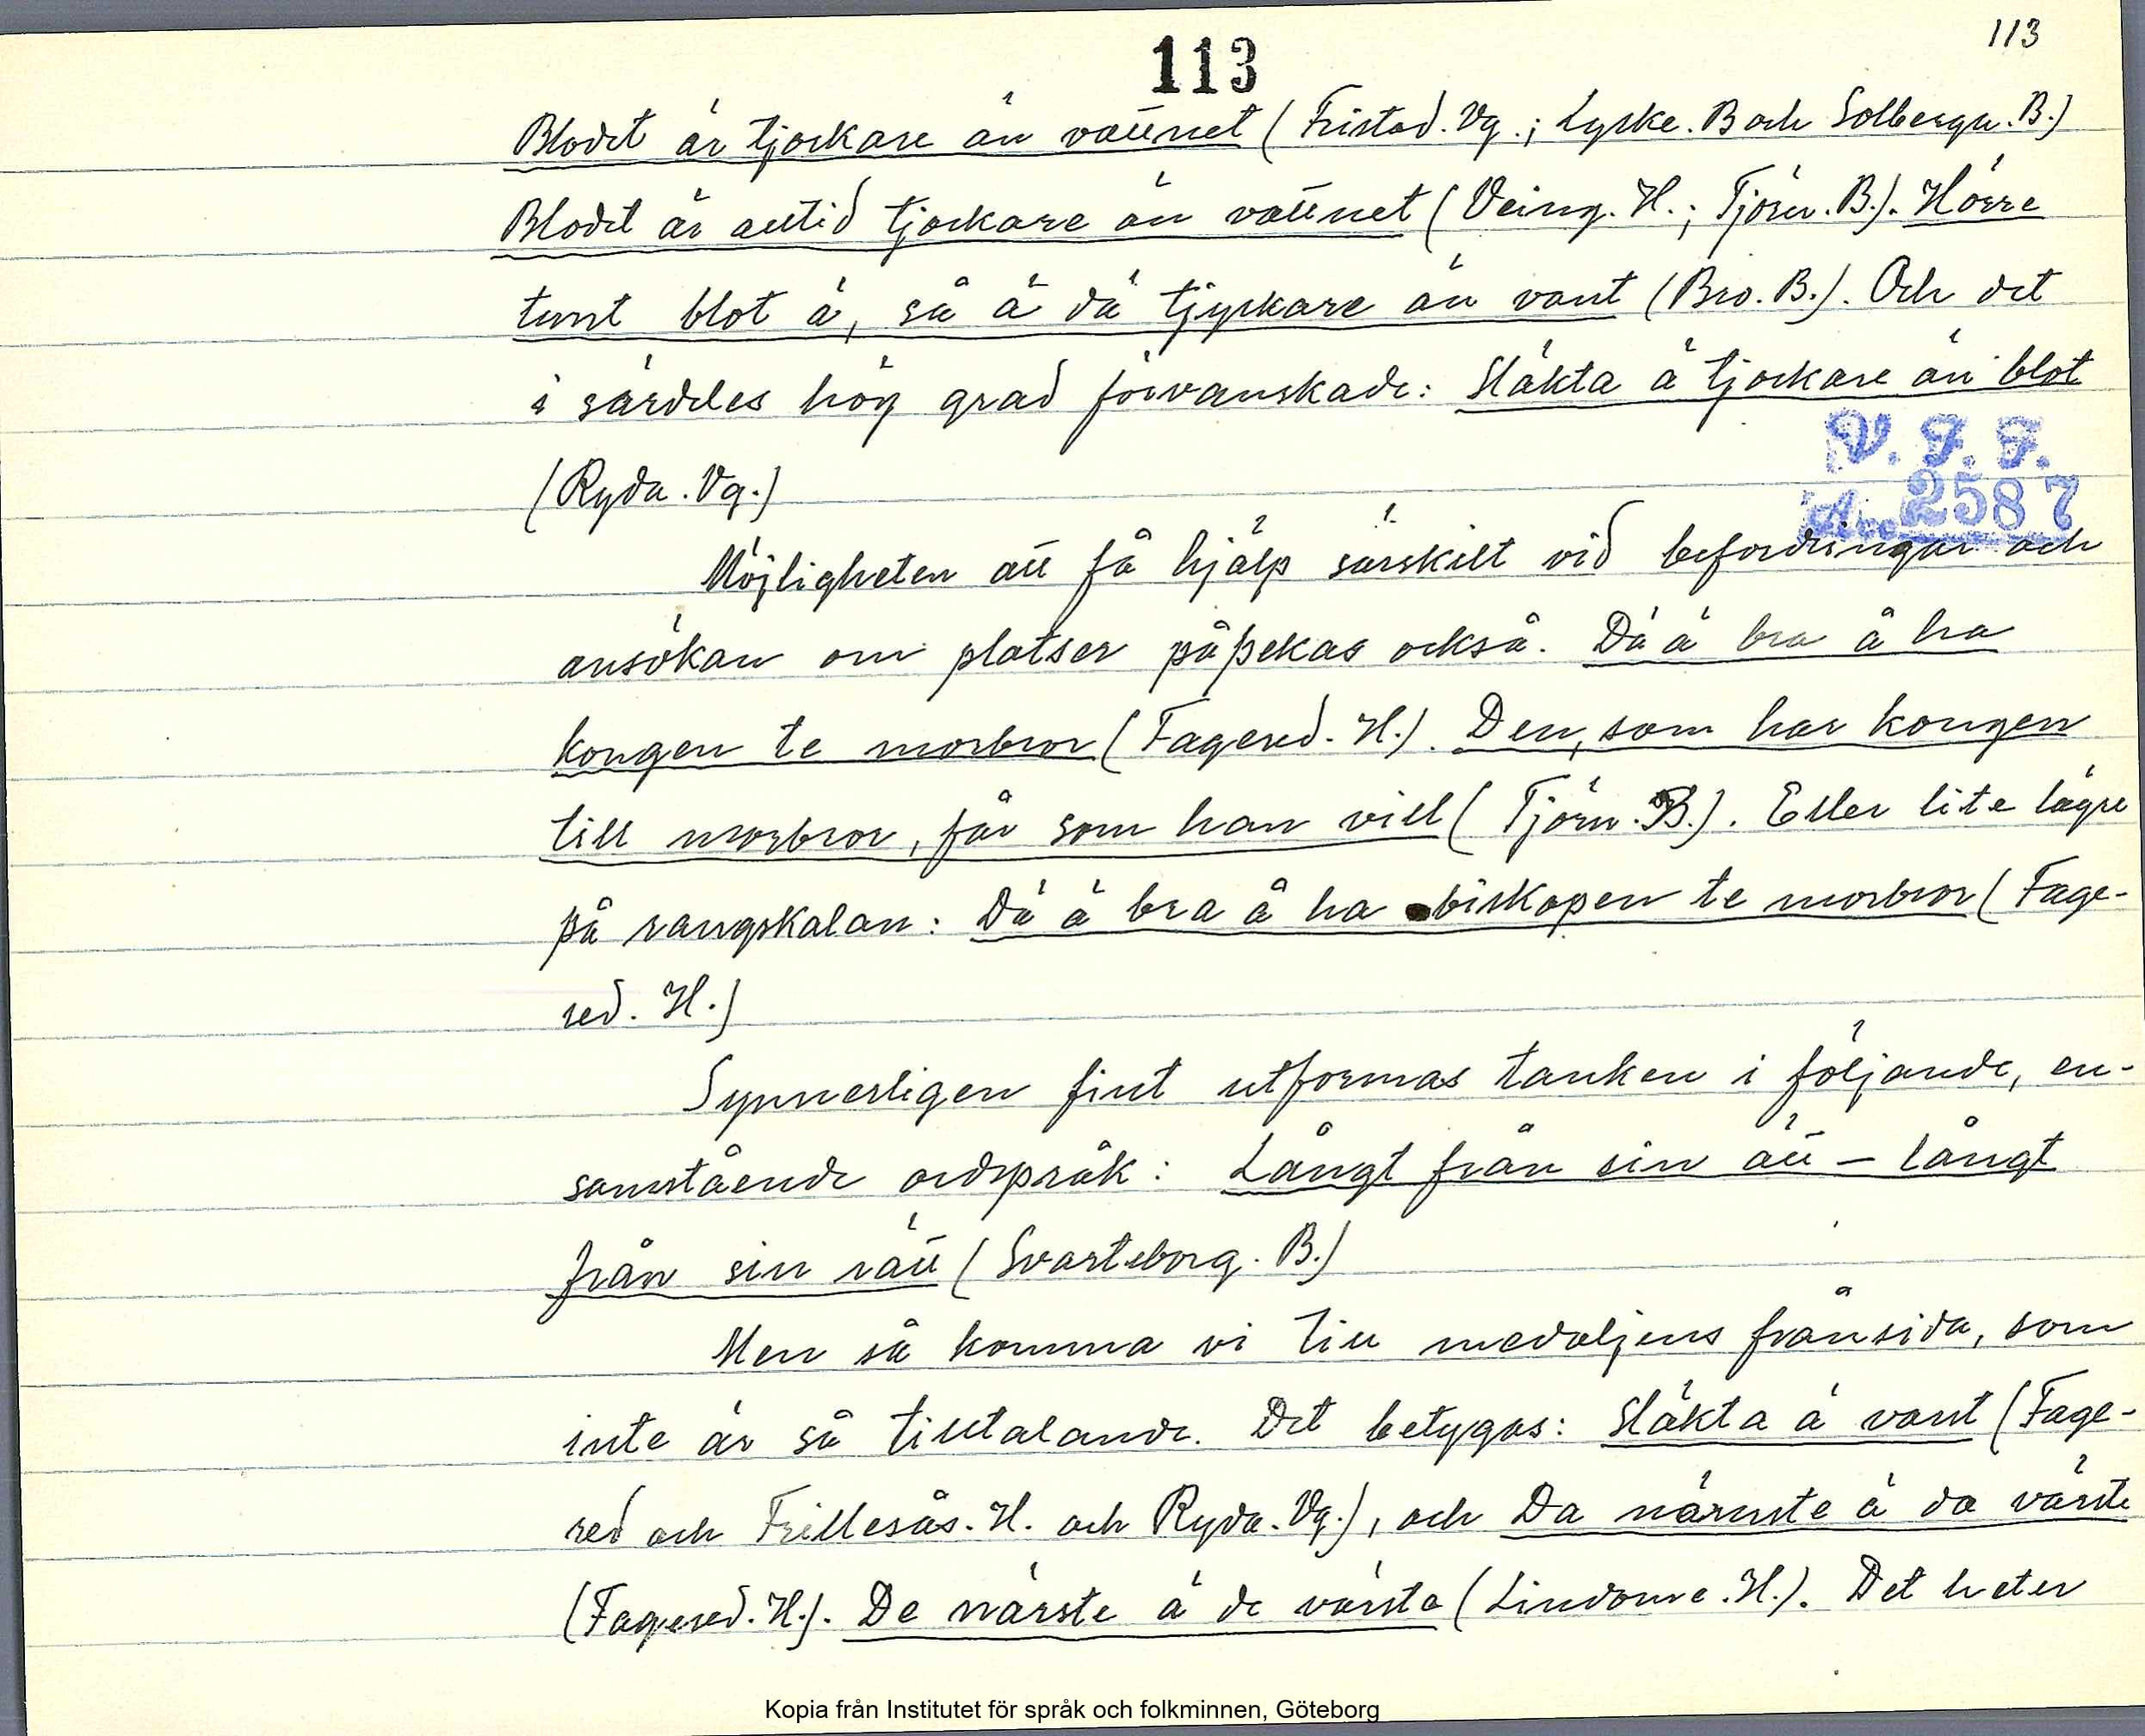 113
113
Blodet är tjockare än vattnet (Fristad. Vg.; Lyske. B och Solberga. B.)
Blodet är alltid tjockare än vattnet (Veing. H.; Tjörn. B.). Hörre
tunt blot ä, så ä dä tjyckare än vant (Bro. B.). Och det
i särdeles hög grad förvanskade: Släkta ä tjockare än blot
(Ryda. Vg.)
V. F. F.
Acc. 2587
Möjligheten att få hjälp särskilt vid befordringar och
ansökan om platser påpekas också. Dä ä bra å ha
kongen te morbror (Fagered. H.). Den, som har kongen
till morbror, får som han vill (Tjörn. B.). Eller lite lägre
på rangskalan: Dä ä bra å ha biskopen te morbror (Fage-
red. H.)
Synnerligen fint utformas tanken i följande, en-
samstående ordspråk: Långt från sin ätt – långt
från sin rätt (Svarteborg. B.)
Men så komma vi till medaljens frånsida, som
inte är så tilltalande. Det betygas: Släkta ä varst (Fage-
red och Frillesås. H. och Ryda. Vg.), och Da närmste ä da värste
(Fagered. H.). De närste ä de värsta (Lindome. H.). Det heter
Kopia från Institutet för språk och folkminnen, Göteborg